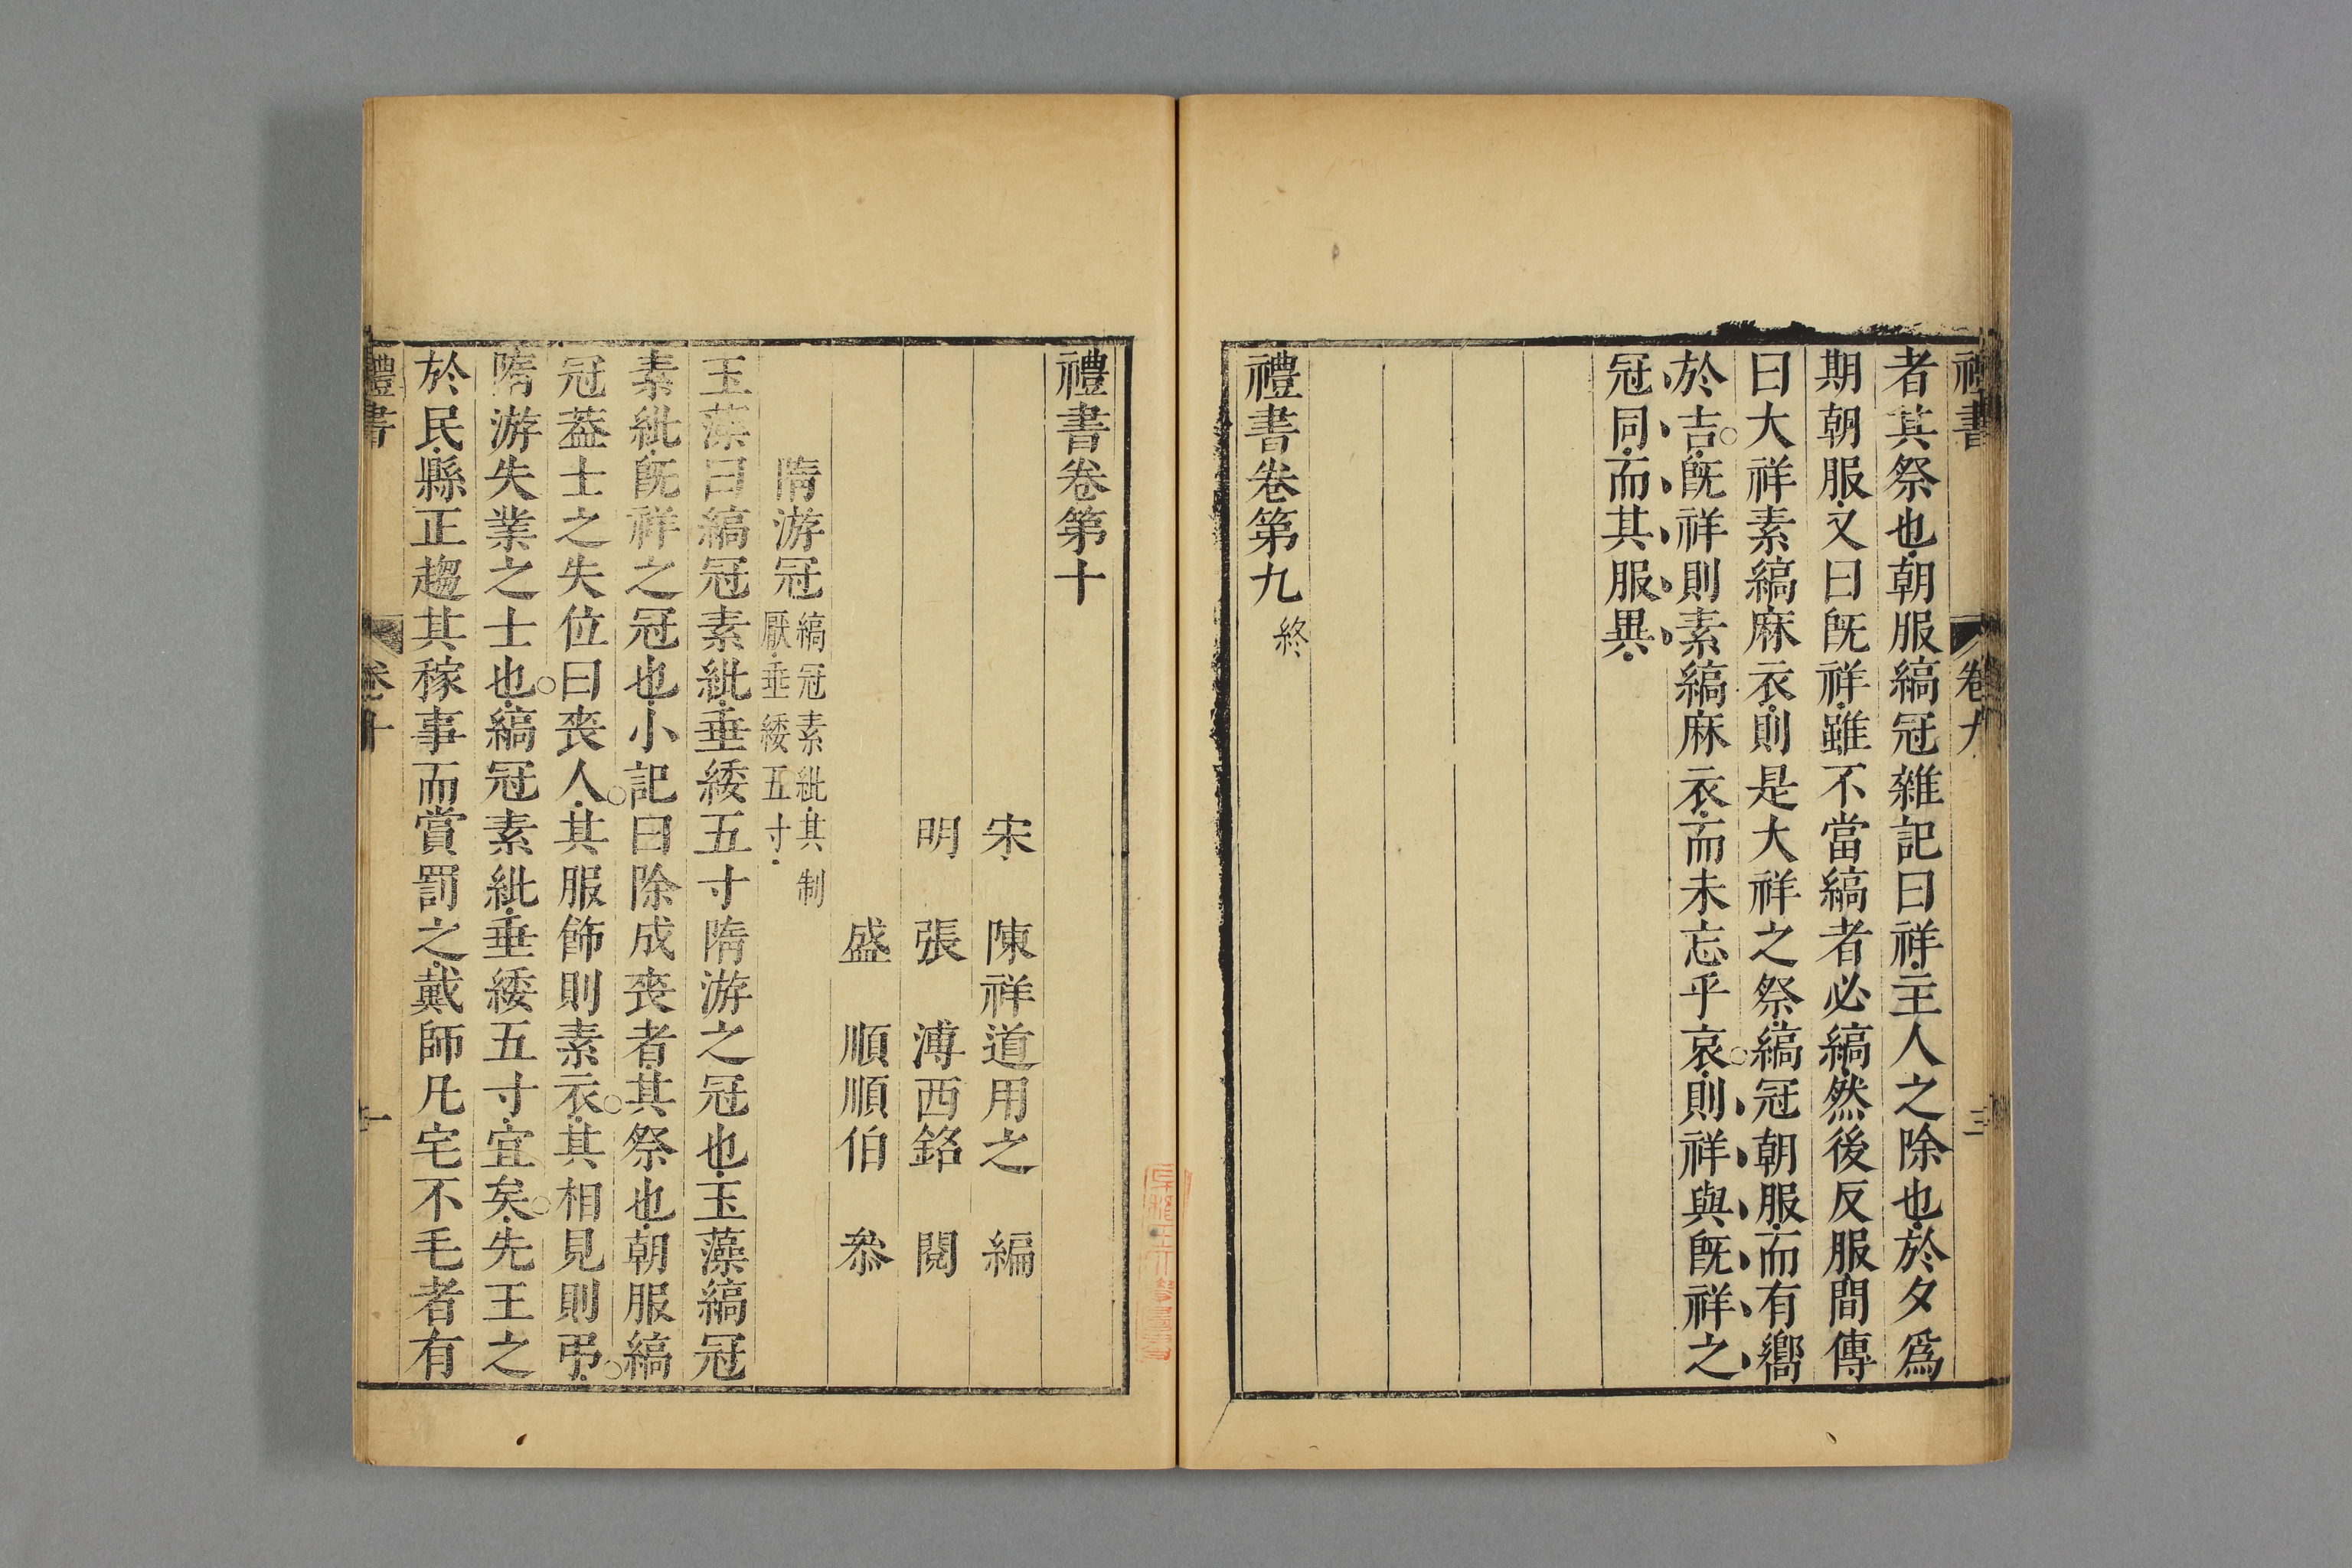 禮書 卷九 三
者其祭也朝服縞冠雜記曰祥主人之除也於夕爲
期朝服又曰旣祥雖不當縞者必縞然後反服間傳
曰大祥素縞麻衣則是大祥之祭縞冠朝服而有嚮
於吉旣祥則素縞麻衣而未忘乎哀則祥與旣祥之
冠同而其服異
禮書卷第九終
禮書卷第十
宋 陳祥道用之 編
明 張 溥西銘 閱
盛 順順伯 叅
隋游冠 縞冠素紕其制
厭垂緌五寸
玉藻曰縞冠素紕垂緌五寸隋游之冠也玉藻縞冠
素紕旣祥之冠也小記曰除成喪者其祭也朝服縞
冠葢士之失位曰喪人其服飾則素衣其相見則弔
隋游失業之士也縞冠素紕垂緌五寸宜矣先王之
於民縣正趨其稼事而賞罰之戴師凡宅不毛者有
禮書 卷十 一